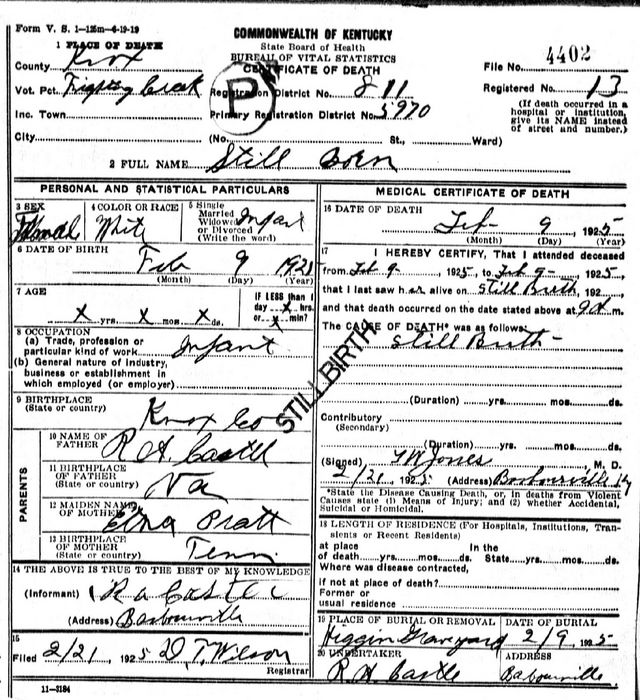 Form V. S. 1—125m—6-19-19
COMMONWEALTH OF KENTUCKY
State Board of Health
BUREAU OF VITAL STATISTICS
CERTIFICATE OF DEATH
1 PLACE OF DEATH
County Knox
File No. 4402
Vot. Pct. Fighting Creek
Registration District No. 811
Registered No. 13
Inc. Town
Primary Registration District No. 5970
(If death occurred in a hospital or institution, give its NAME instead of street and number.)
City (No. St., Ward)
P
2 FULL NAME Still Born
PERSONAL AND STATISTICAL PARTICULARS
3 SEX
4 COLOR OR RACE White
5 Single Married Widowed or Divorced (Write the word) Infant
6 DATE OF BIRTH Feb 9 1925
(Month) (Day) (Year)
7 AGE x yrs. x mos. x ds.
IF LESS than 1 day x hrs. or x min?
8 OCCUPATION
(a) Trade, profession or particular kind of work Infant
(b) General nature of industry, business or establishment in which employed (or employer)
9 BIRTHPLACE (State or country) Knox Co
PARENTS
10 NAME OF FATHER R. H. Castle
11 BIRTHPLACE OF FATHER (State or country) Va
12 MAIDEN NAME OF MOTHER Pratt
13 BIRTHPLACE OF MOTHER (State or country) Tenn
14 THE ABOVE IS TRUE TO THE BEST OF MY KNOWLEDGE
(Informant) R a Castle
(Address) Barbourville
15 Filed 2/21, 1925 D. T. Wilson
Registrar
11—3184
STILL BIRTH
MEDICAL CERTIFICATE OF DEATH
16 DATE OF DEATH Feb 9, 1925
(Month) (Day) (Year)
17 I HEREBY CERTIFY, That I attended deceased
from Feb 9, 1925, to Feb 9, 1925,
that I last saw h alive on Still Birth, 192
and that death occurred on the date stated above at 9 m.
The CAUSE OF DEATH* was as follows:
Still Birth
(Duration) yrs. mos. ds.
Contributory
(Secondary)
(Duration) yrs. mos. ds.
(Signed) Jones, M. D.
2/21, 1925 (Address) Barbourville Ky
*State the Disease Causing Death, or, in deaths from Violent Causes state (1) Means of Injury; and (2) whether Accidental, Suicidal or Homicidal.
18 LENGTH OF RESIDENCE (For Hospitals, Institutions, Transients or Recent Residents)
at place of death yrs. mos. ds. In the State yrs. mos. ds.
Where was disease contracted,
if not at place of death?
Former or usual residence
19 PLACE OF BURIAL OR REMOVAL Higgin Graveyard
DATE OF BURIAL 2/9, 1925
20 UNDERTAKER R. H. Castle
ADDRESS Barbourville